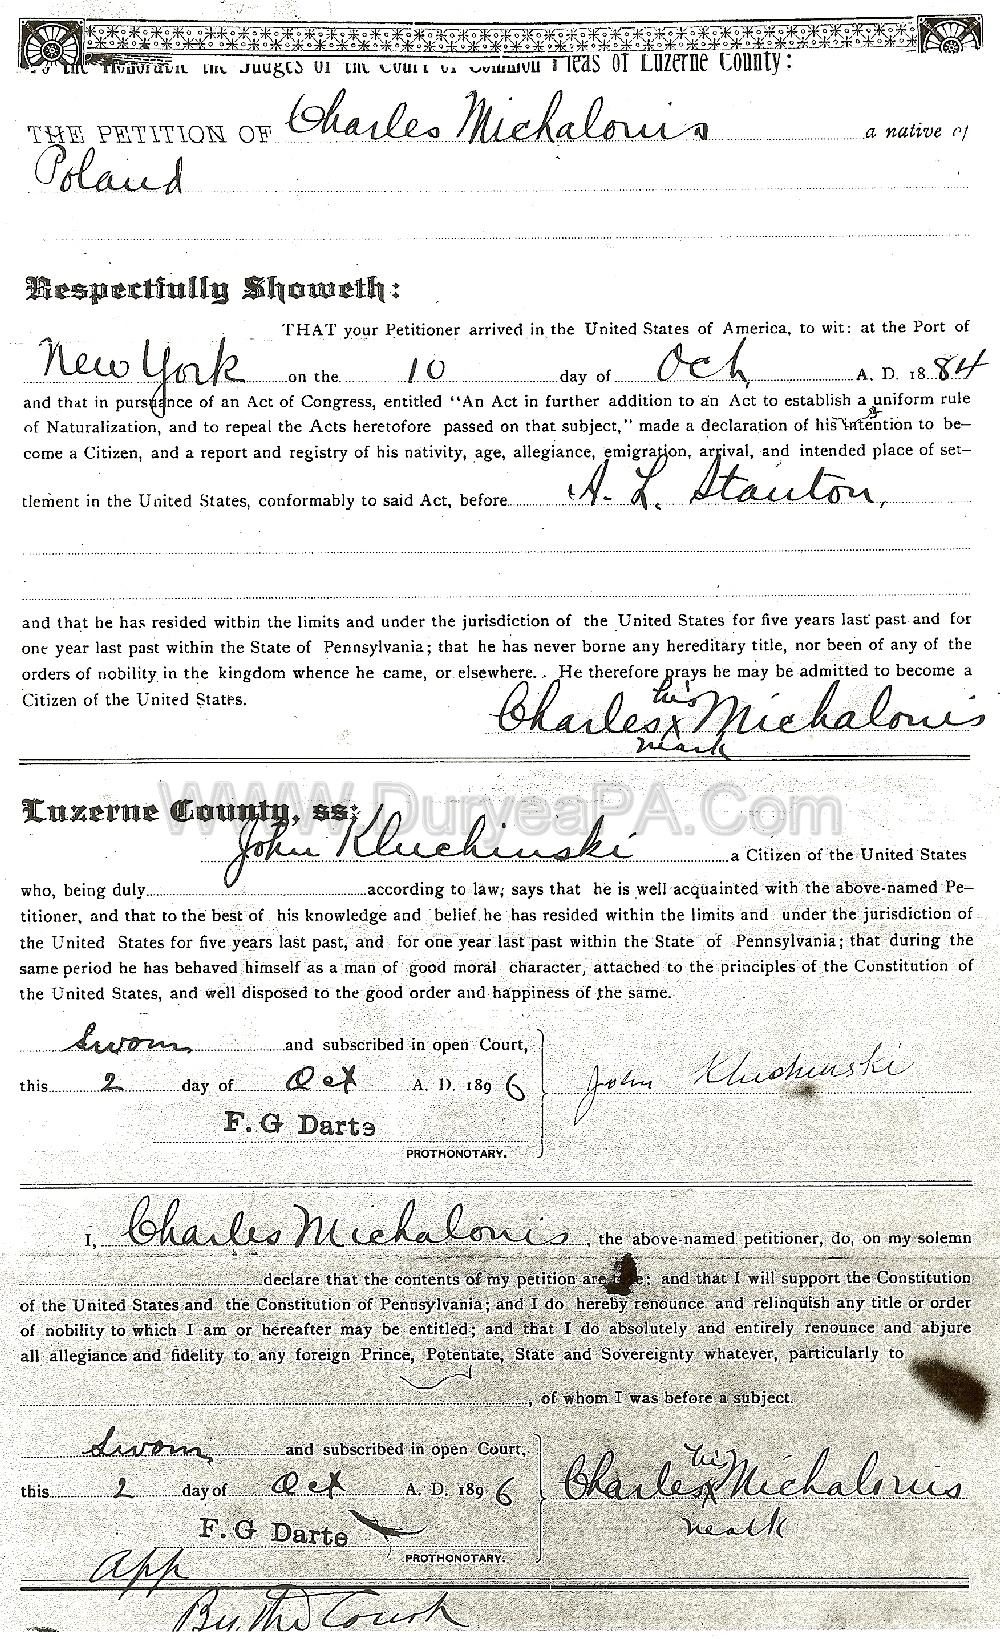 To the Honorable the Judges of the Court of Common Pleas of Luzerne County:
THE PETITION OF Charles Michalonis a native of
Poland
Respectfully Showeth:
THAT your Petitioner arrived in the United States of America, to wit: at the Port of
New York on the 10 day of Och A. D. 1884
and that in pursuance of an Act of Congress, entitled "An Act in further addition to an Act to establish a uniform rule
of Naturalization, and to repeal the Acts heretofore passed on that subject," made a declaration of his intention to be-
come a Citizen, and a report and registry of his nativity, age, allegiance, emigration, arrival, and intended place of set-
tlement in the United States, conformably to said Act, before A. L. Stanton,
and that he has resided within the limits and under the jurisdiction of the United States for five years last past and for
one year last past within the State of Pennsylvania; that he has never borne any hereditary title, nor been of any of the
orders of nobility in the kingdom whence he came, or elsewhere. He therefore prays he may be admitted to become a
Citizen of the United States.
his
Charles x Michalonis
mark
WWW.DuryeaPA.Com
Luzerne County, ss:
John Kluchinski a Citizen of the United States
who, being duly according to law; says that he is well acquainted with the above-named Pe-
titioner, and that to the best of his knowledge and belief he has resided within the limits and under the jurisdiction of
the United States for five years last past, and for one year last past within the State of Pennsylvania; that during the
same period he has behaved himself as a man of good moral character, attached to the principles of the Constitution of
the United States, and well disposed to the good order and happiness of the same.
Sworn and subscribed in open Court,
this 2 day of Oct A. D. 1896 John Kluchinski
F. G Darte
PROTHONOTARY.
I, Charles Michalonis, the above-named petitioner, do, on my solemn
declare that the contents of my petition are; and that I will support the Constitution
of the United States and the Constitution of Pennsylvania; and I do hereby renounce and relinquish any title or order
of nobility to which I am or hereafter may be entitled; and that I do absolutely and entirely renounce and abjure
all allegiance and fidelity to any foreign Prince, Potentate, State and Sovereignty whatever, particularly to
, of whom I was before a subject.
Sworn and subscribed in open Court,
his
this 2 day of Oct A. D. 1896 Charles x Michalonis
mark
F. G Darte
PROTHONOTARY.
App
By the Court